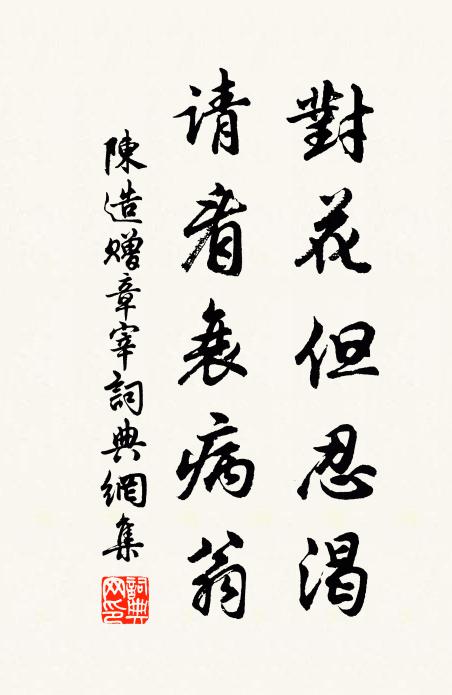 對花但忍渴
请看衰病翁
陳造贈章宰詞典網集
詞典网印